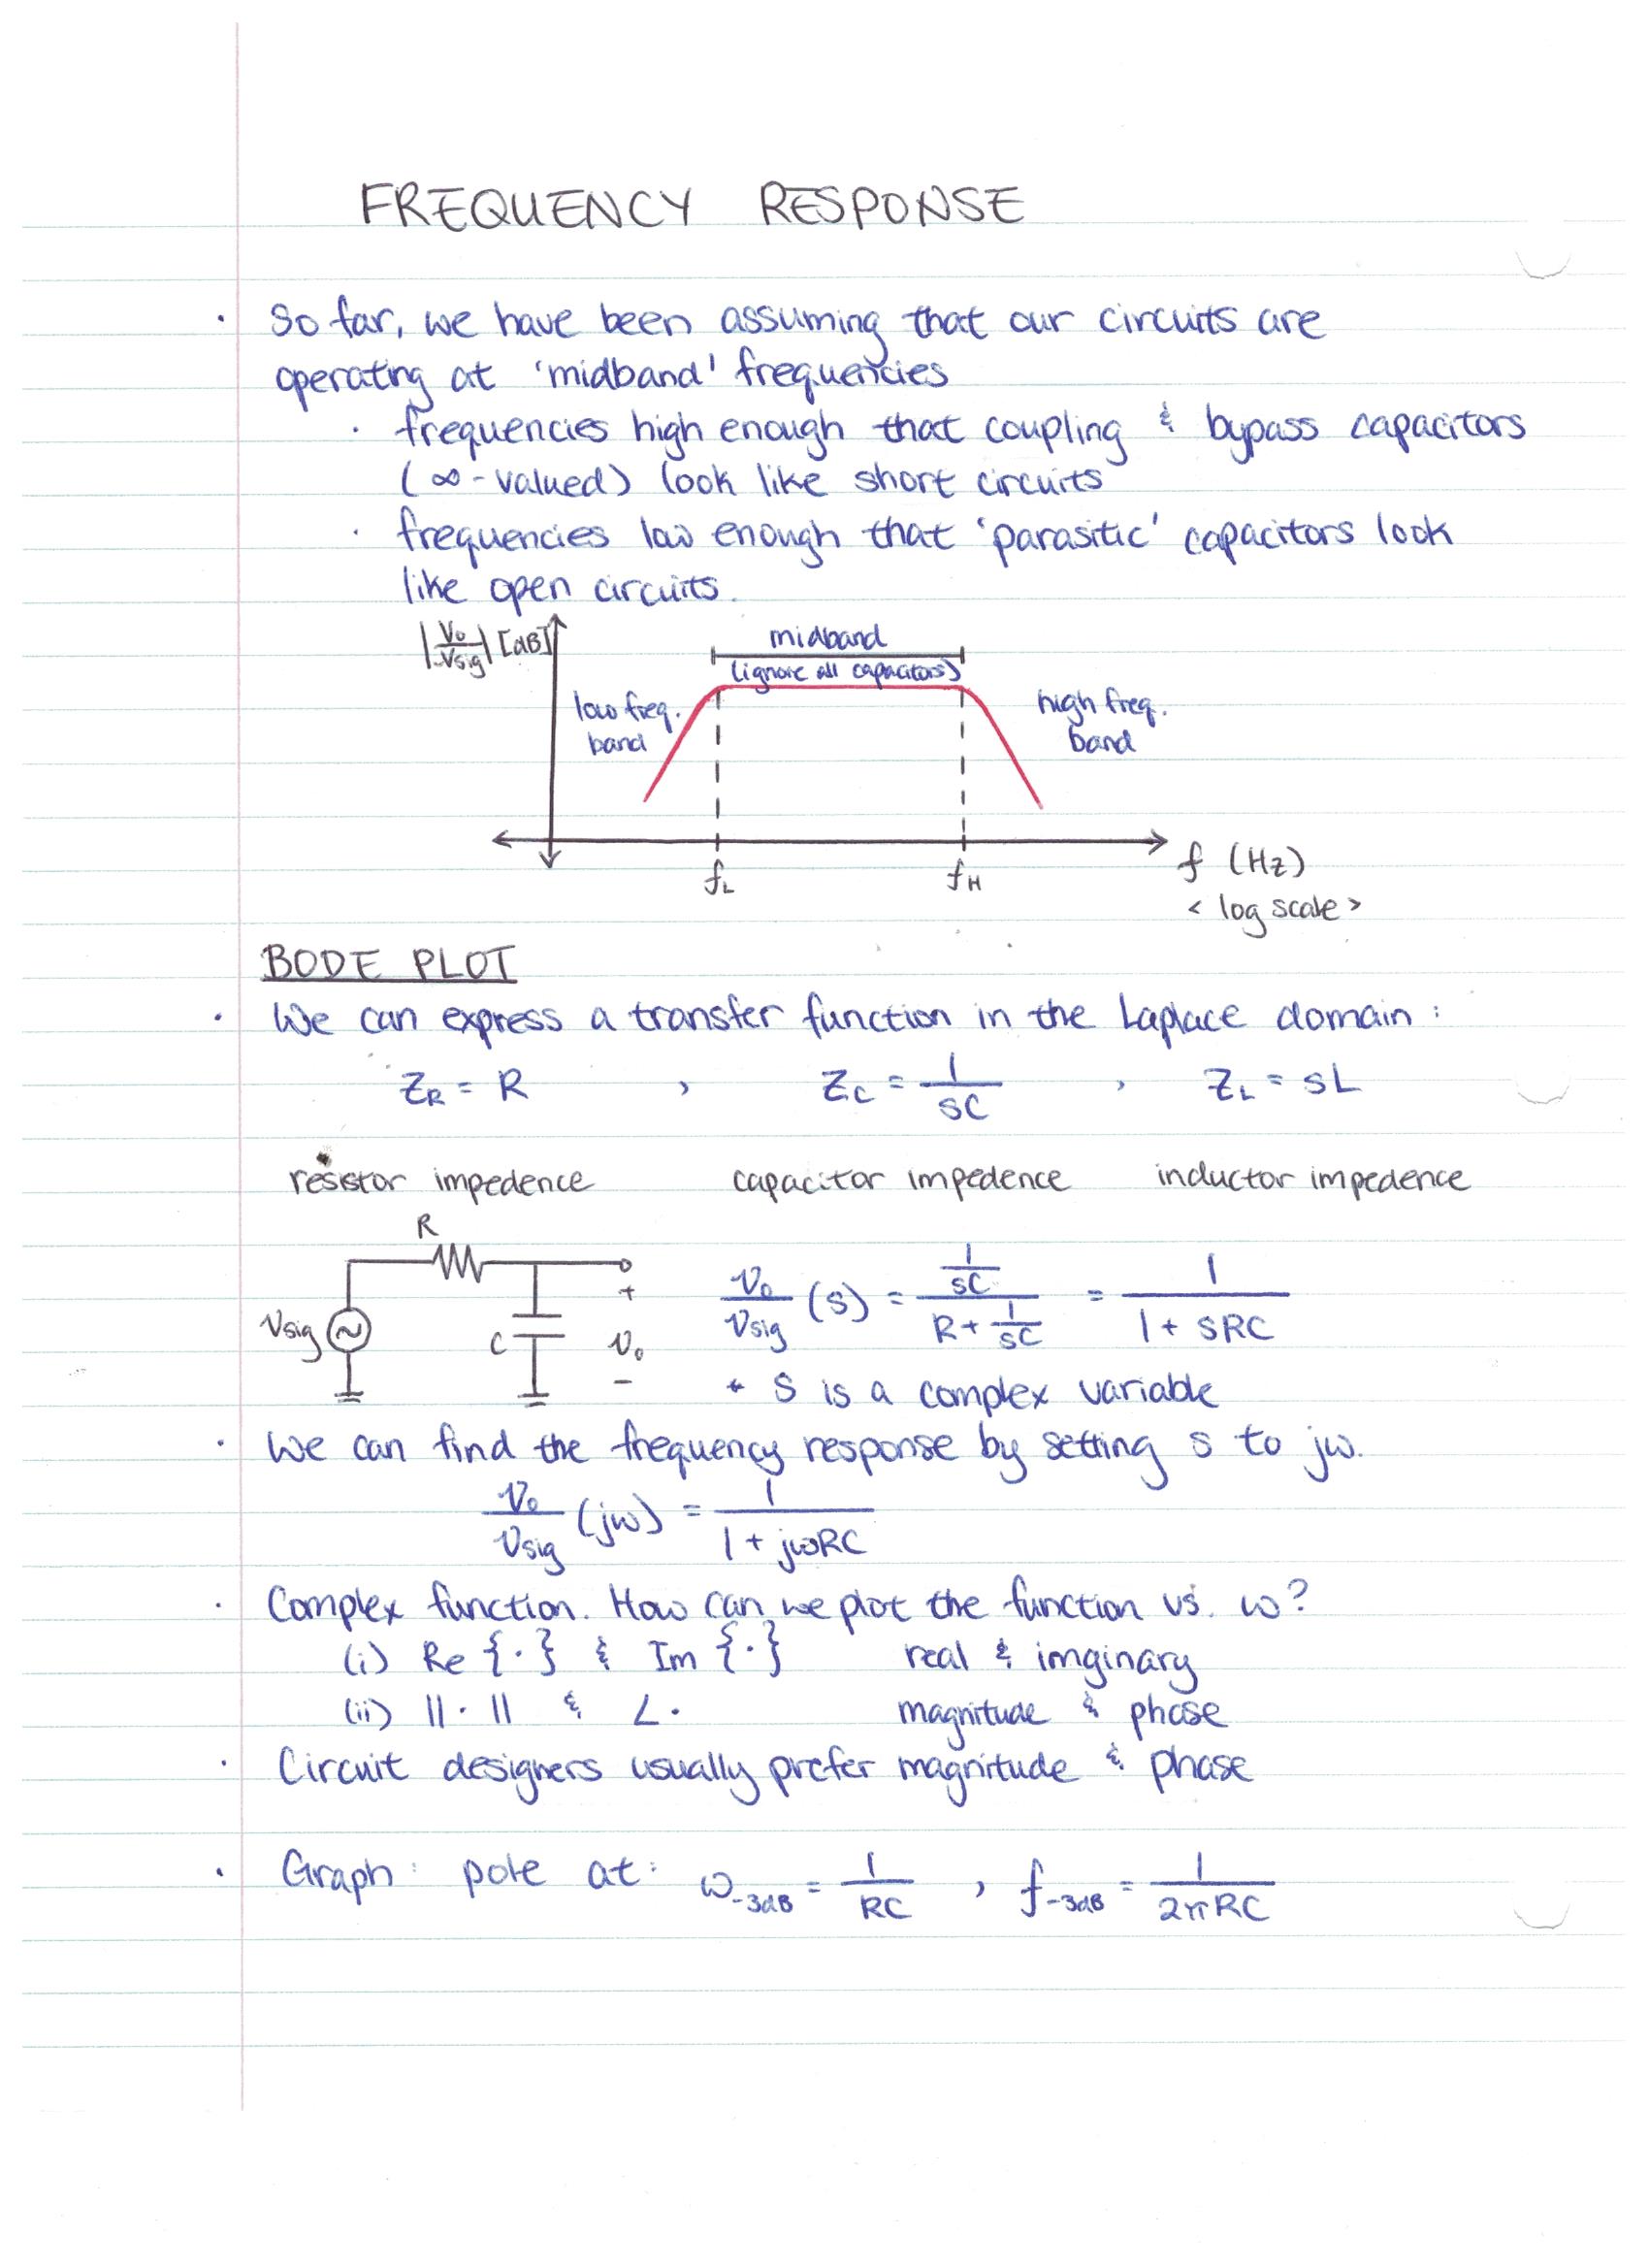 FREQUENCY RESPONSE
· So far, we have been assuming that our circuits are
operating at 'midband' frequencies
· frequencies high enough that coupling & bypass capacitors
(∞-valued) look like short circuits
· frequencies low enough that 'parasitic' capacitors look
like open circuits.
|Vo/Vsig| [dB]
midband
(ignore all capacitors)
low freq.
band
high freq.
band
fL
fH
f (Hz)
< log scale >
BODE PLOT
· We can express a transfer function in the Laplace domain:
ZR = R , ZC = 1/sC , ZL = sL
resistor impedence capacitor impedence inductor impedence
R
Vsig
C
+
Vo
-
Vo/Vsig (s) = (1/sC)/(R + 1/sC) = 1/(1 + SRC)
* S is a complex variable
· We can find the frequency response by setting s to jω.
Vo/Vsig (jω) = 1/(1 + jωRC)
· Complex function. How can we plot the function vs. ω?
(i) Re {·} & Im {·} real & imginary
(ii) ||·|| & ∠· magnitude & phase
· Circuit designers usually prefer magnitude & phase
· Graph: pole at: ω-3dB = 1/RC , f-3dB = 1/2πRC